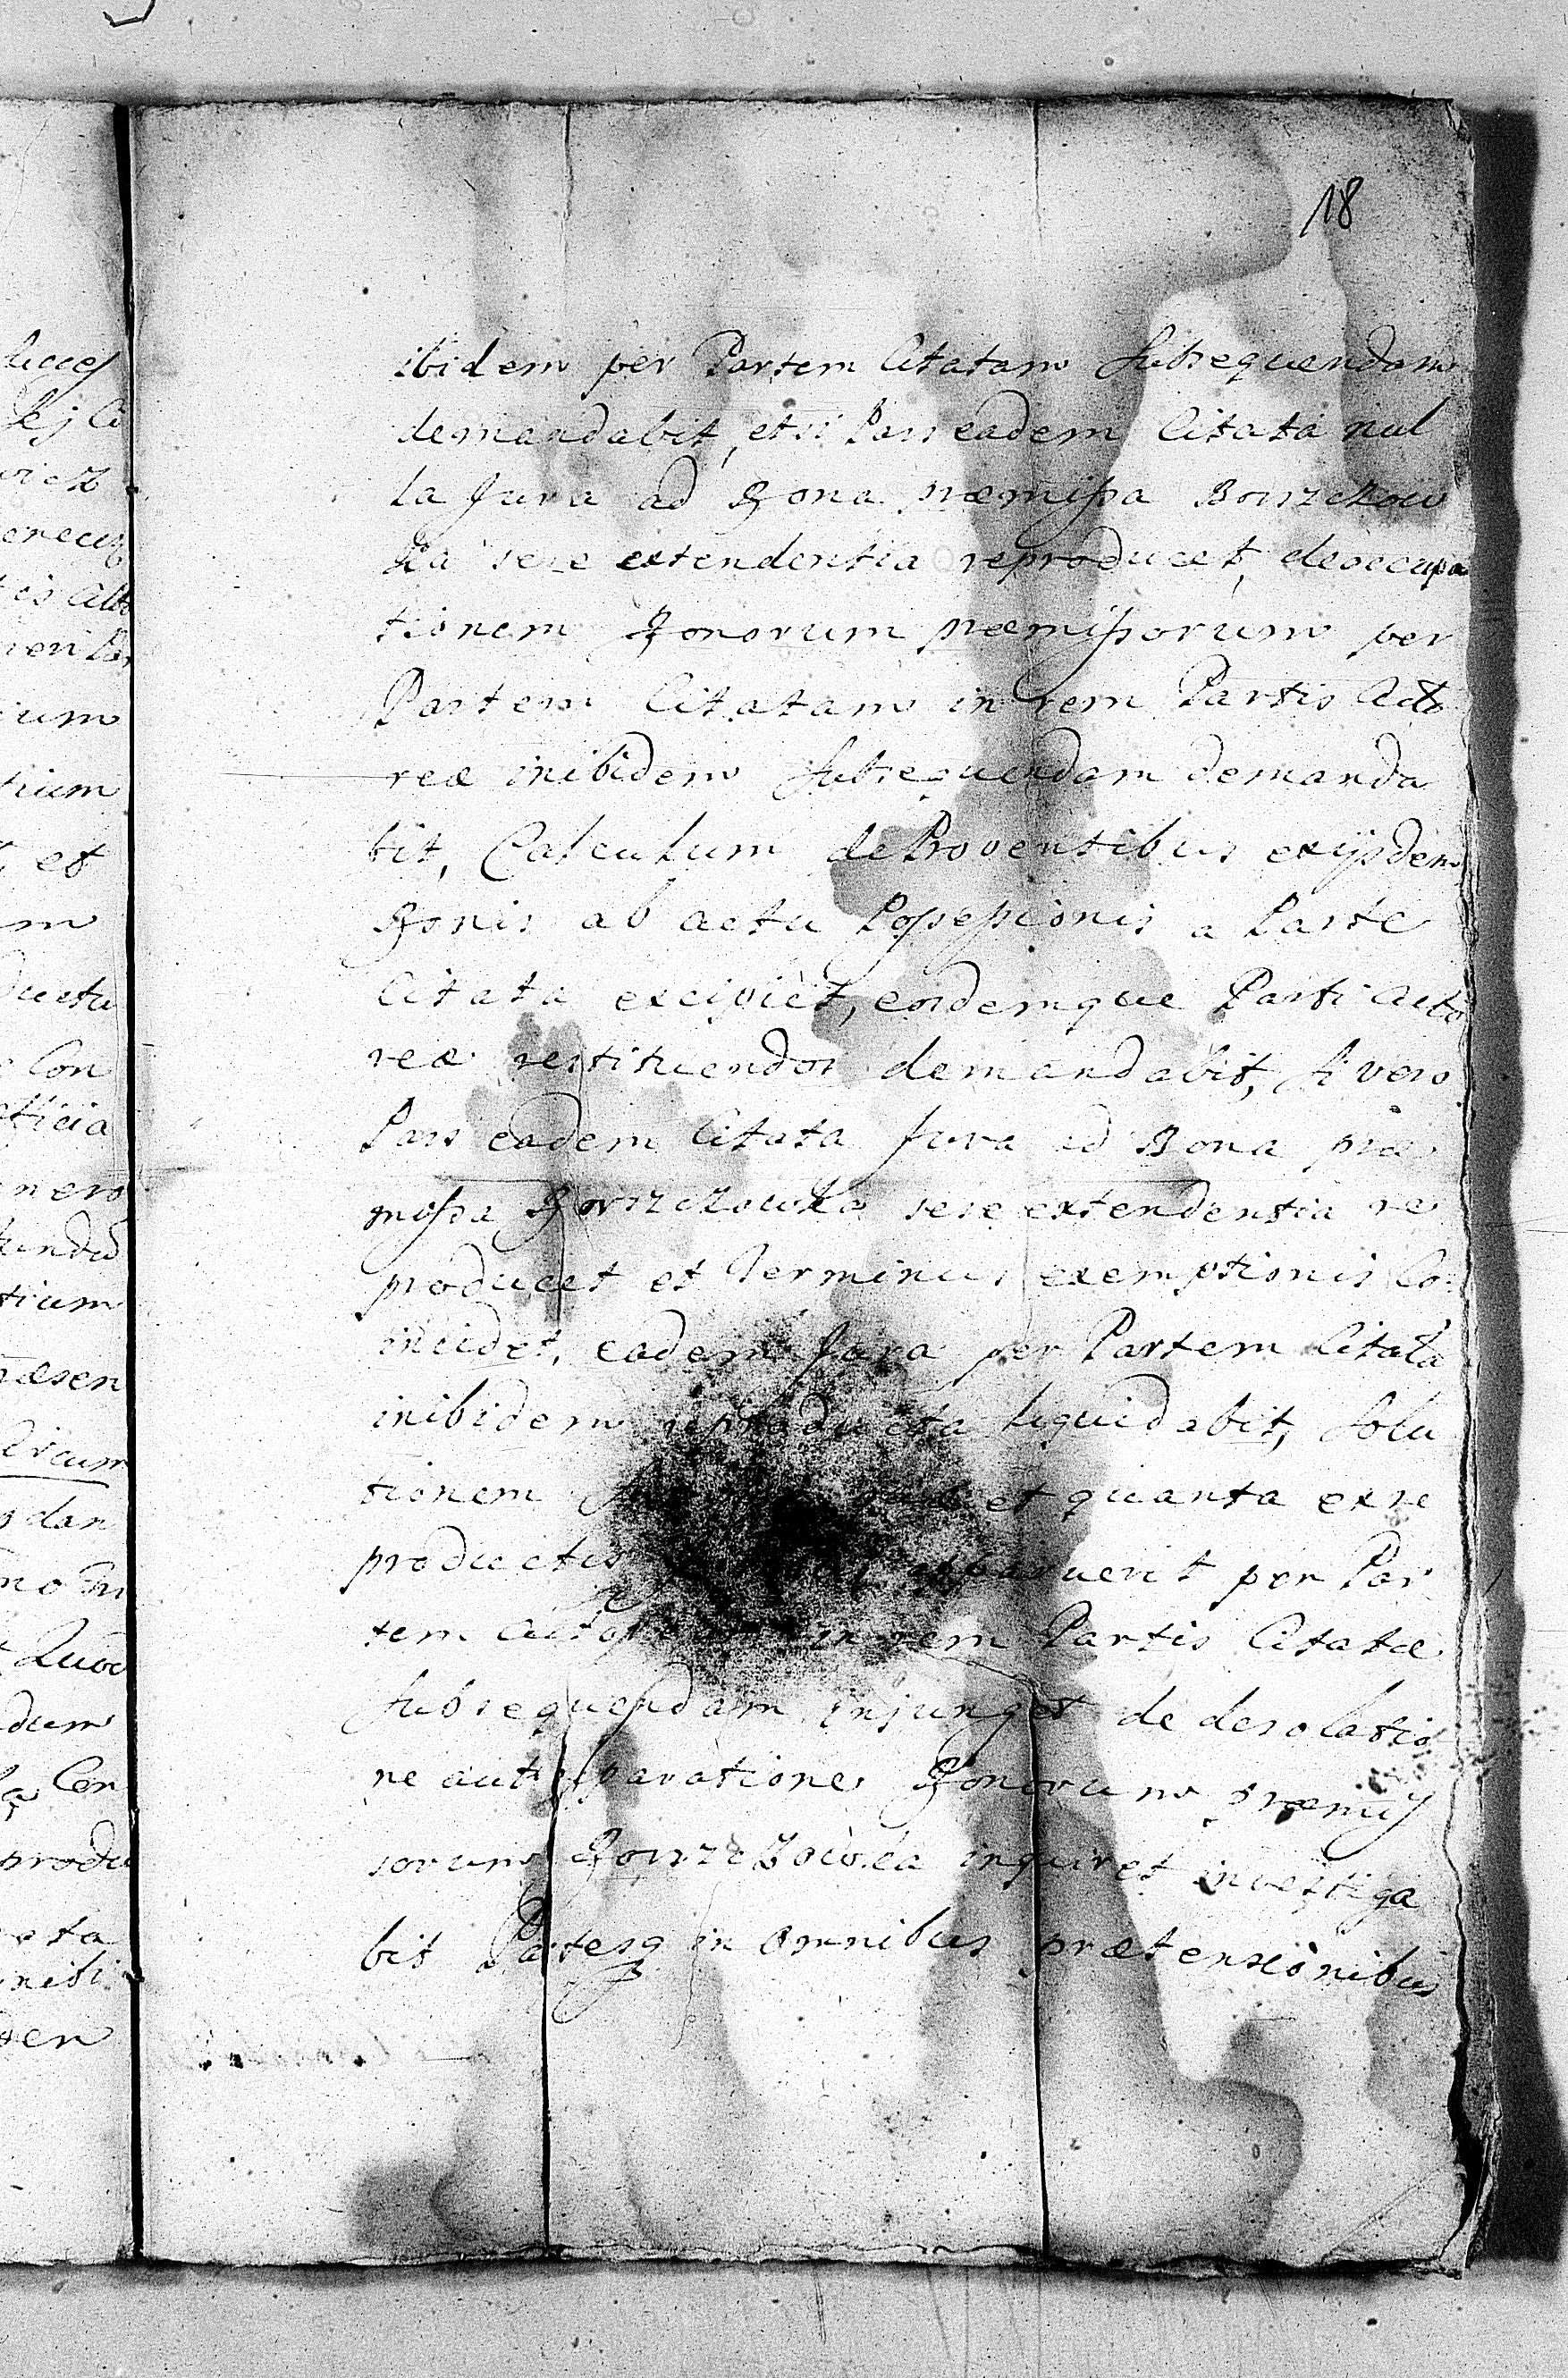 18
ibidem per Partem Citatam Subsequendam
demandabit, et si Pars eadem Citata nul
la Jura ad Bona præmissa Borszczow
ka sese extendentia reproducet, deoccupa
tionem Bonorum præmissorum per
Partem Citatam in rem Partis Acto
reæ inibidem Subsequendam demanda
bit, Calculum de Proventibus ex ijsdem
Bonis ab actu Possessionis a Parte
Citata excipiet, eosdemque Parti Acto
reæ restituendos demandabit, Si vero
Pars eadem Citata Jura ad Bona præ
missa Borszczowka sese extendentia re
producet et Terminus exemptionis Co
incidet, eadem Jura per Partem Citata
inibidem reproducta liquidabit, Solu
tionem et quanta ex re
productis apparuerit per Par
tem in rem Partis Citatæ
Subsequendam injunget de desolatio
ne aut Bonorum præmis
sorum Borszczowka inquiret investiga
bit Partesq in omnibus prætensionibus